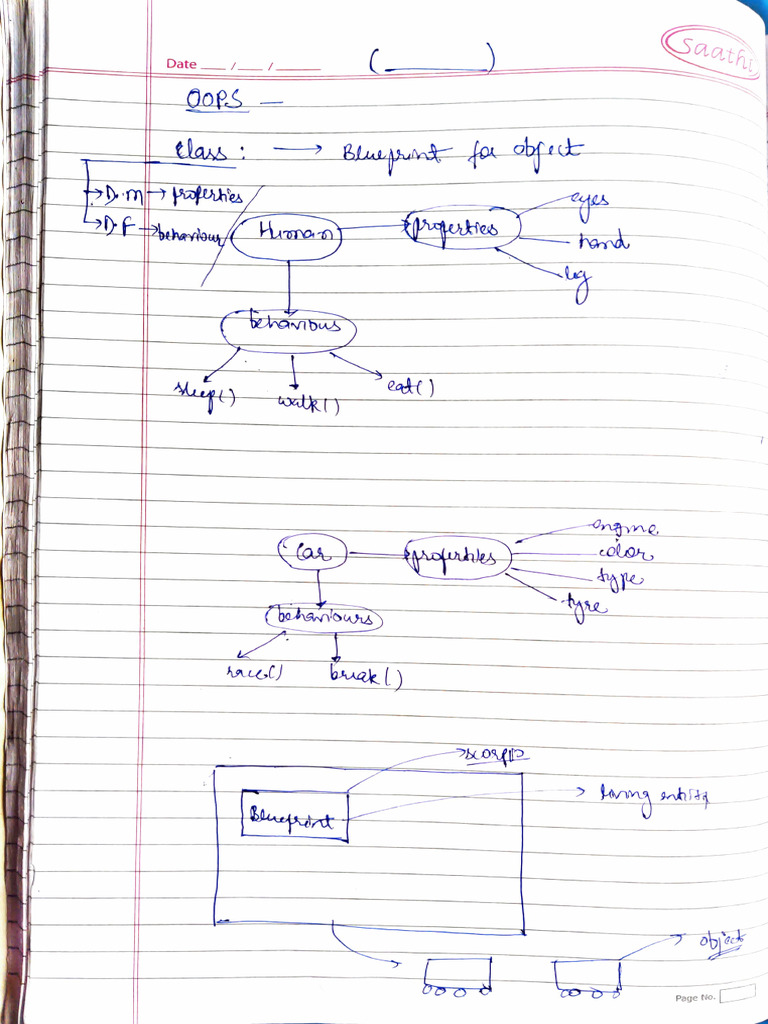 saathi
Date ___/___/_____ (________)
OOPS —
Class : → Blueprint for object
→ D.M → properties
→ D.F → behaviour
Human properties eyes
hand
leg
behaviours
sleep() walk() eat()
Car properties engine
color
type
tyre
behaviours
race() break()
scorpio
Blueprint → living entity
→ object
Page No.